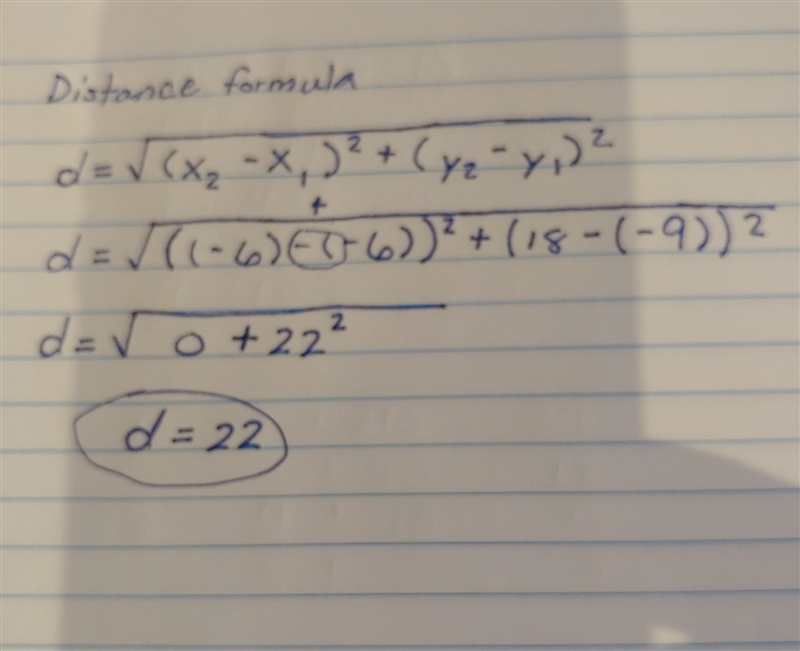 Distance formula
d = √(x₂ - x₁)² + (y₂ - y₁)²
+
d = √((-6) - (-6))² + (18 - (-9))²
d = √ 0 + 22²
d = 22